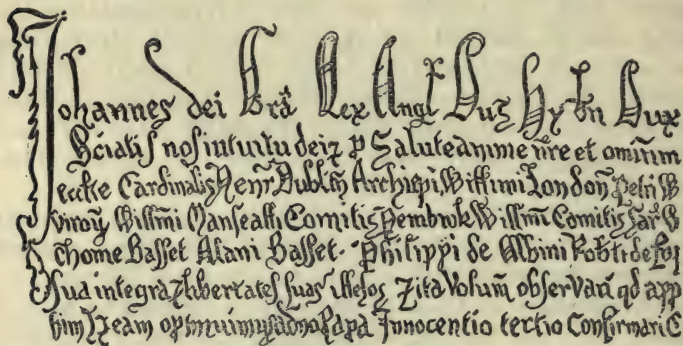 Johannes dei Grā Rex Angł Dns Hybn Dux
Sciatis nos intuitu dei ⁊ p Salute anime nr̄e et omnium
eccłie Cardinalis Henr̄ Dubliñ Archiep̄i Willimi Londoñ Petri W
viroꝝ Willm̄i Marscalli Comitis Pembrok Willm̄i Comitis Sar̄ W
Thome Basset Alani Basset. Philippi de Albini Rob̄ti de
sua integra ⁊ libertates suas illesas ⁊ ita volum̄ observari qd app
⁊ eam optinuimus a dno Papa Innocentio tertio Confirmari